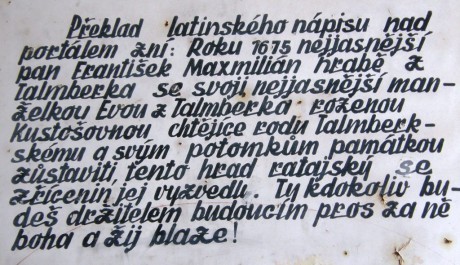 Překlad latinského nápisu nad
portálem zní: Roku 1675 nejjasnější
pan František Maxmilián hrabě z
Talmberka se svojí nejjasnější man-
želkou Evou z Talmberka roženou
Kustošovnou chtějíce rodu Talmberk-
skému a svým potomkům památkou
zůstaviti tento hrad ratajský se
zřícenin jej vyzvedu. Ty kdokoliv bu-
deš držitelem budoucím pros za ně
boha a žij blaze!